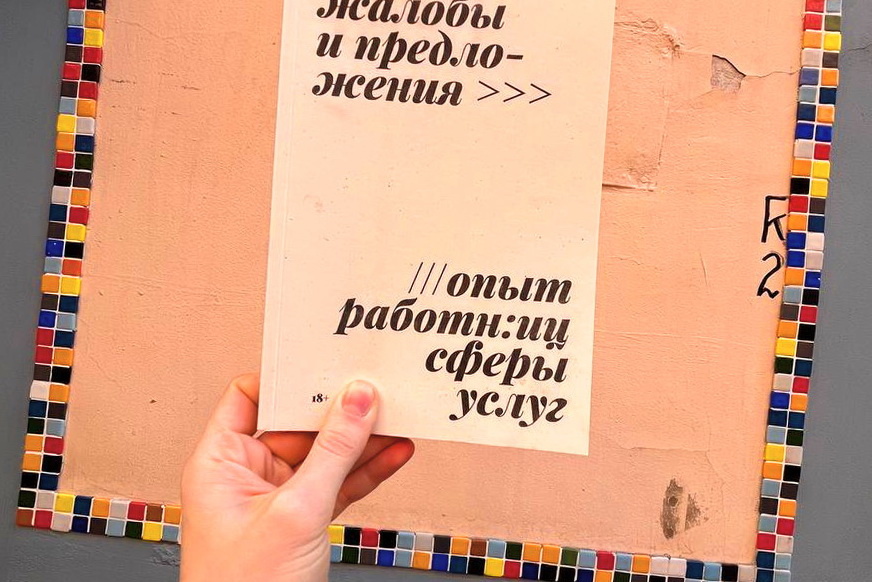 жалобы
и предло-
жения >>>
///опыт
работн:иц
сферы
услуг
18+
К
2